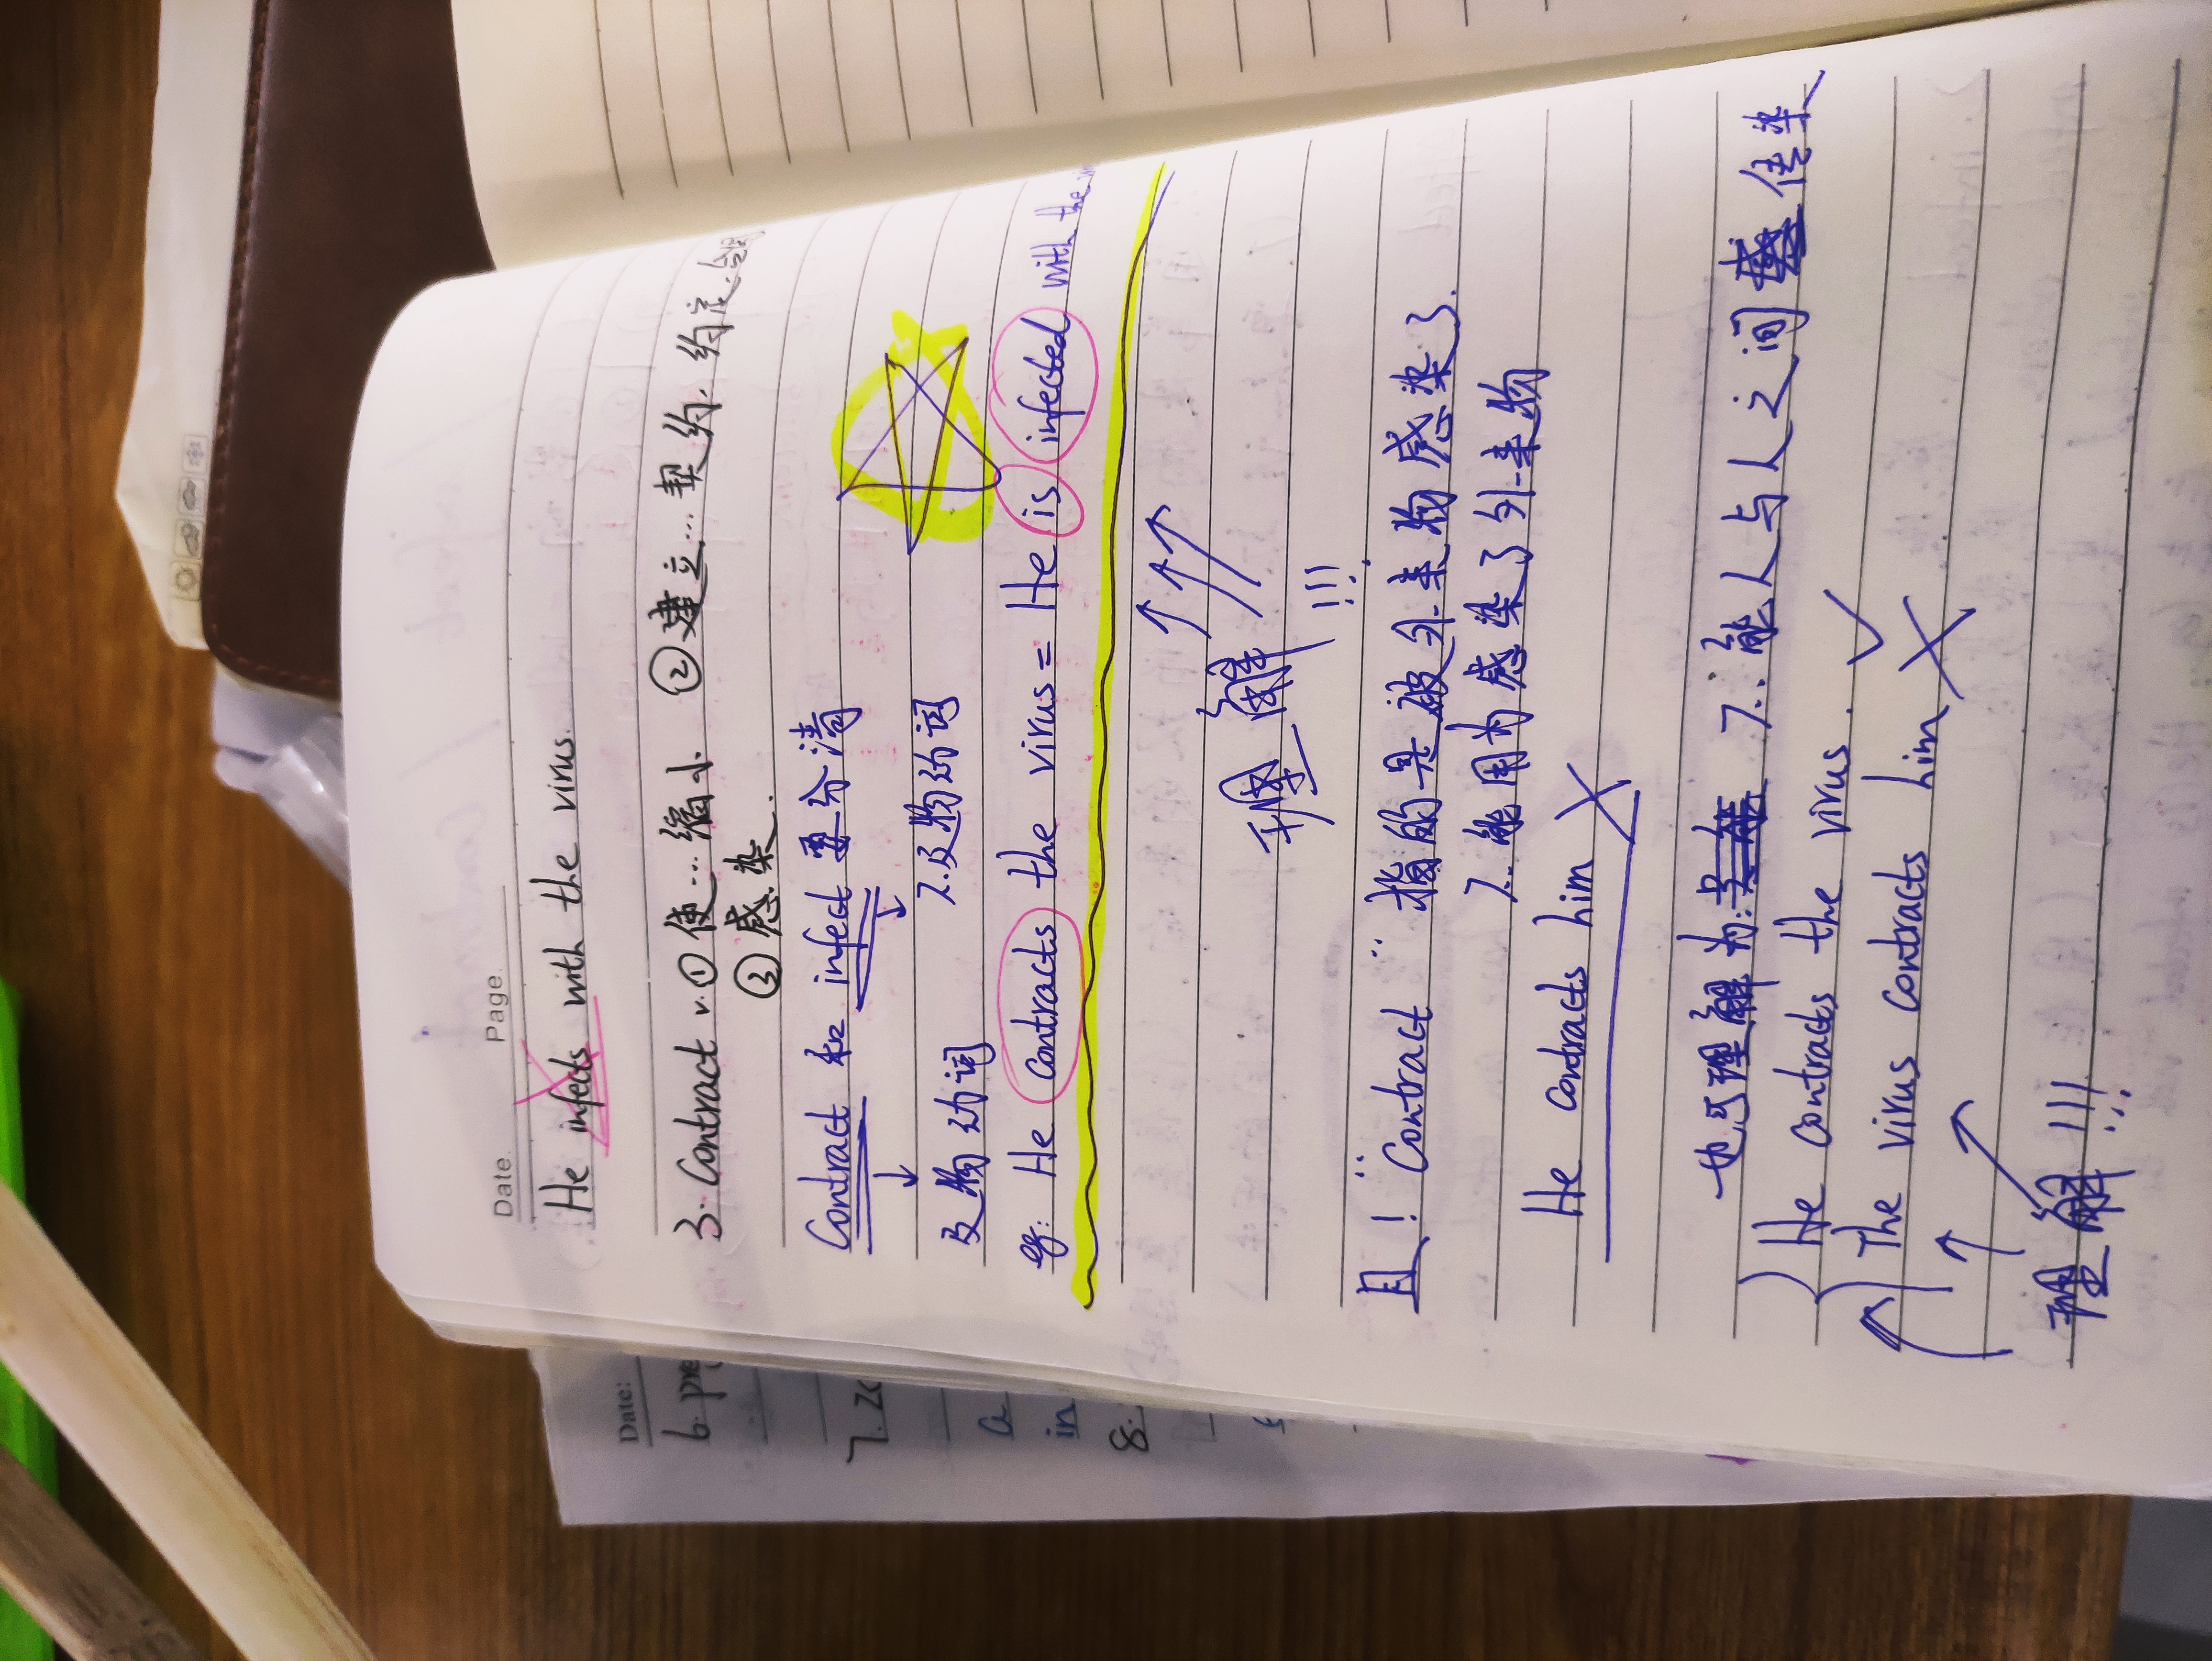 Date. Page.
He infects with the virus.
3. Contract v. ①使…缩小. ②建立…契约.约定.
③感染.
Contract 和 infect 要分清
及物动词 不及物动词
eg: He contracts the virus = He is infected with the
理解!!!
且! Contract 指的是被外来物感染了.
不能用为感染了外来物
He contracts him
也可理解为: 不能人与人之间 传染
He contracts the virus.
The virus contracts him
理解!!!
Date:
6. pre
7. 20
a
in
8.